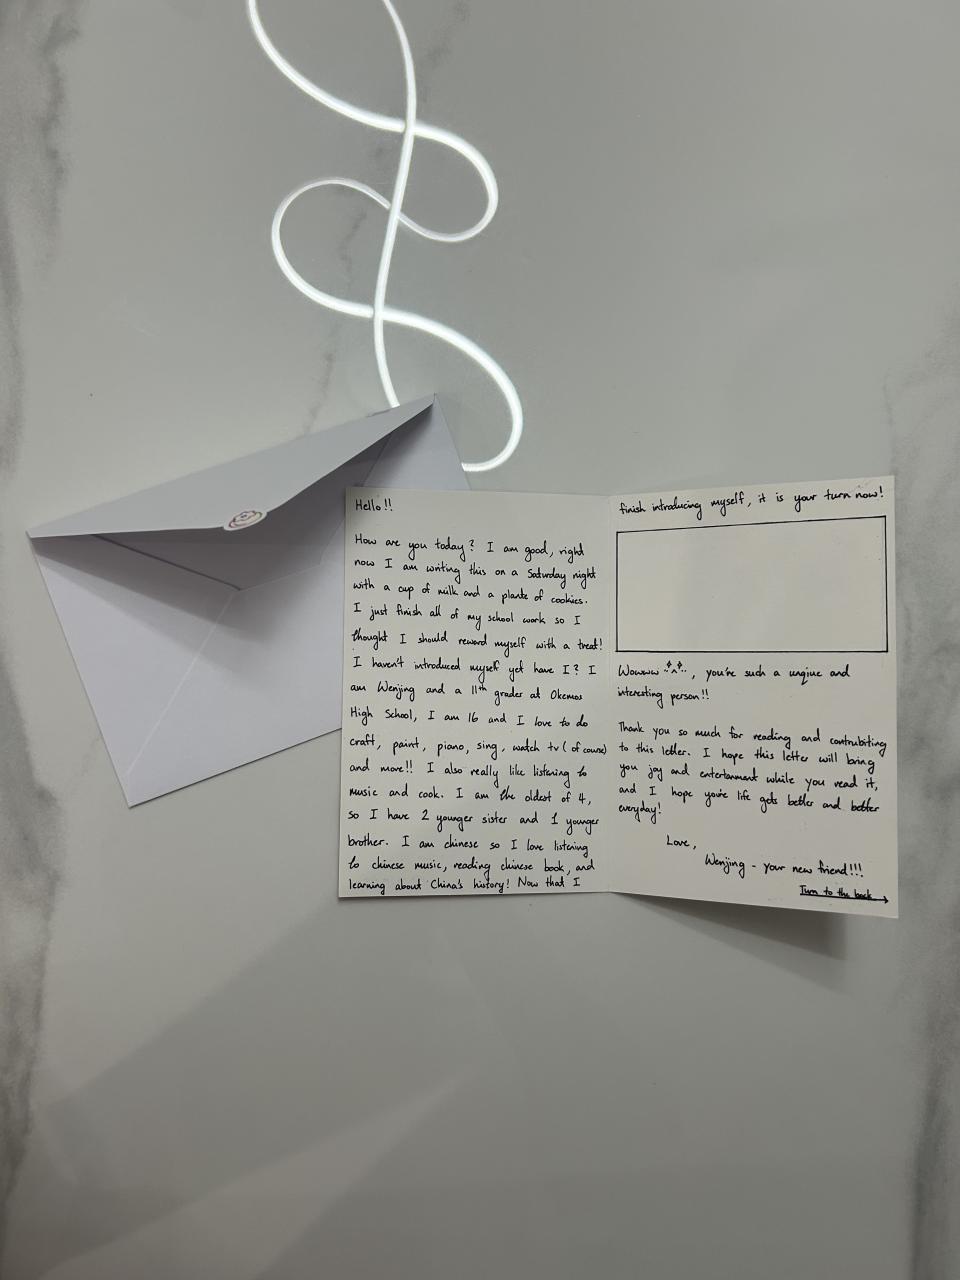 Hello!!
How are you today? I am good, right
now I am writing this on a Saturday night
with a cup of milk and a plante of cookies.
I just finish all of my school work so I
thought I should reward myself with a treat!
I haven't introduced myself yet have I? I
am Wenjing and a 11th grader at Okemos
High School, I am 16 and I love to do
craft, paint, piano, sing, watch tv ( of course)
and more!! I also really like listening to
music and cook. I am the oldest of 4,
so I have 2 younger sister and 1 younger
brother. I am chinese so I love listening
to chinese music, reading chinese book, and
learning about China's history! Now that I
finish introducing myself, it is your turn now!
Wowwww, you're such a unqiue and
interesting person!!
Thank you so much for reading and contrubiting
to this letter. I hope this letter will bring
you joy and entertainment while you read it,
and I hope you're life gets better and better
everyday!
Love,
Wenjing - your new friend!!!
Turn to the back →